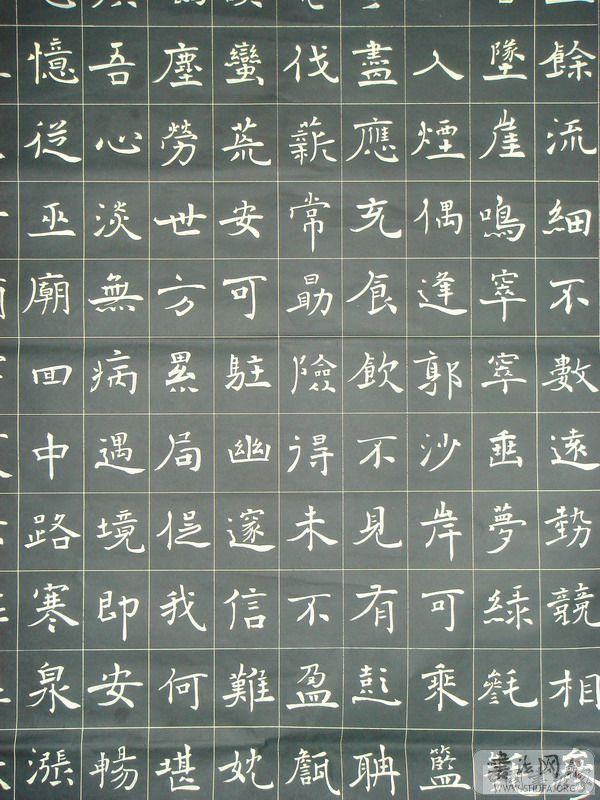 餘流細不數遠勢競相參
墜崖鳴窣窣垂夢綠毿
入煙偶逢郭沙岸可乘籃
盡應充食飲不見有彭聃
伐薪常勗險得未不盈甔
蠻荒安可駐幽邃信難妉
塵勞世方累局促我何堪
吾心淡無病遇境即安暢
憶從巫廟回中路寒泉漲
書法网
WWW.SHUFAJ.ORG